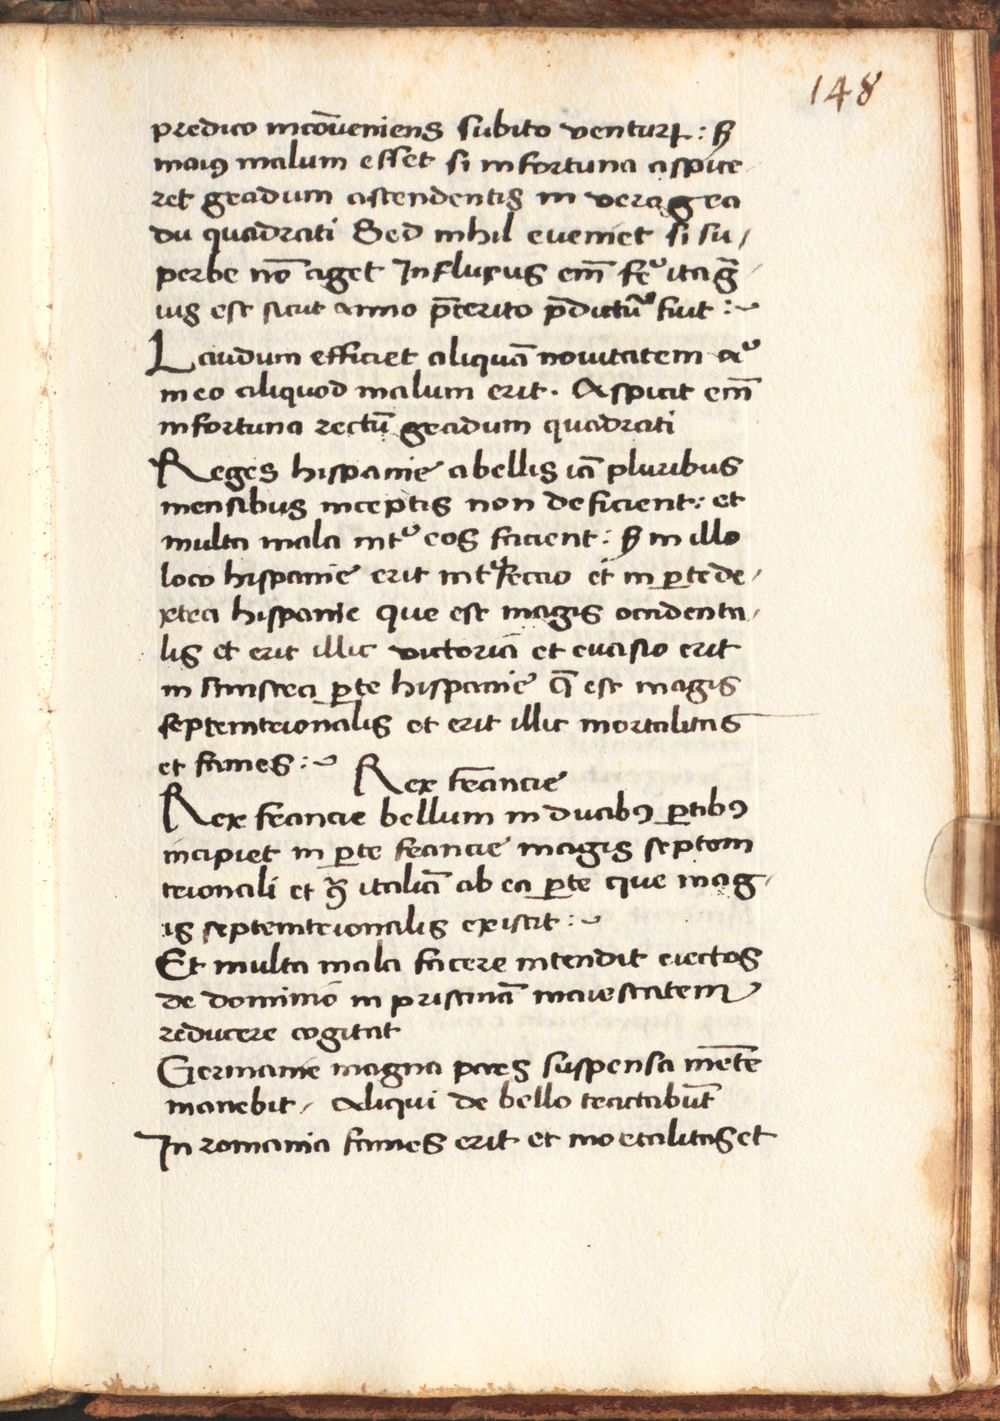 148
predico incōveniens subito ventuꝝ : sꝫ
maiꝰ malum esset si infortuna aspice
ret gradum ascendentis in vera gra
du quadrati Sed nihil eveniet si su/
perbe nō aget Influxus em̄ itag̃
uis est sicut anno p̄terito p̄dictū fuit :~
Laudum efficiet aliquā novitatem
meo aliquod malum erit. Aspicit em̄
infortuna rectū gradum quadrati
Reges hispanie a bellis iā pluribus
mensibus inceptis non deficient : et
multa mala int᷒ eos facient : sꝫ in illo
loco hispanie erit et in ꝑte de/
xtra hispanie que est magis occidenta/
lis et erit illic victoria et evasio erit
in sinistra ꝑte hispanie q̄ est magis
septemtrionalis et erit illic mortalitas
et fames :~
Rex frāncie
Rex francie bellum in duabꝰ ꝑtibꝰ
incipiet in ꝑte francie magis septem
trionali et italiā ab ea ꝑte que mag/
is septemtrionalis existit :~
Et multa mala facere intendit eiectos
de dominio in pristinā maiestatem
reducere cogitat
Germanie magna pars suspensa mēte
manebit / aliqui de bello tractabūt
In romania fames erit et mortalitas et